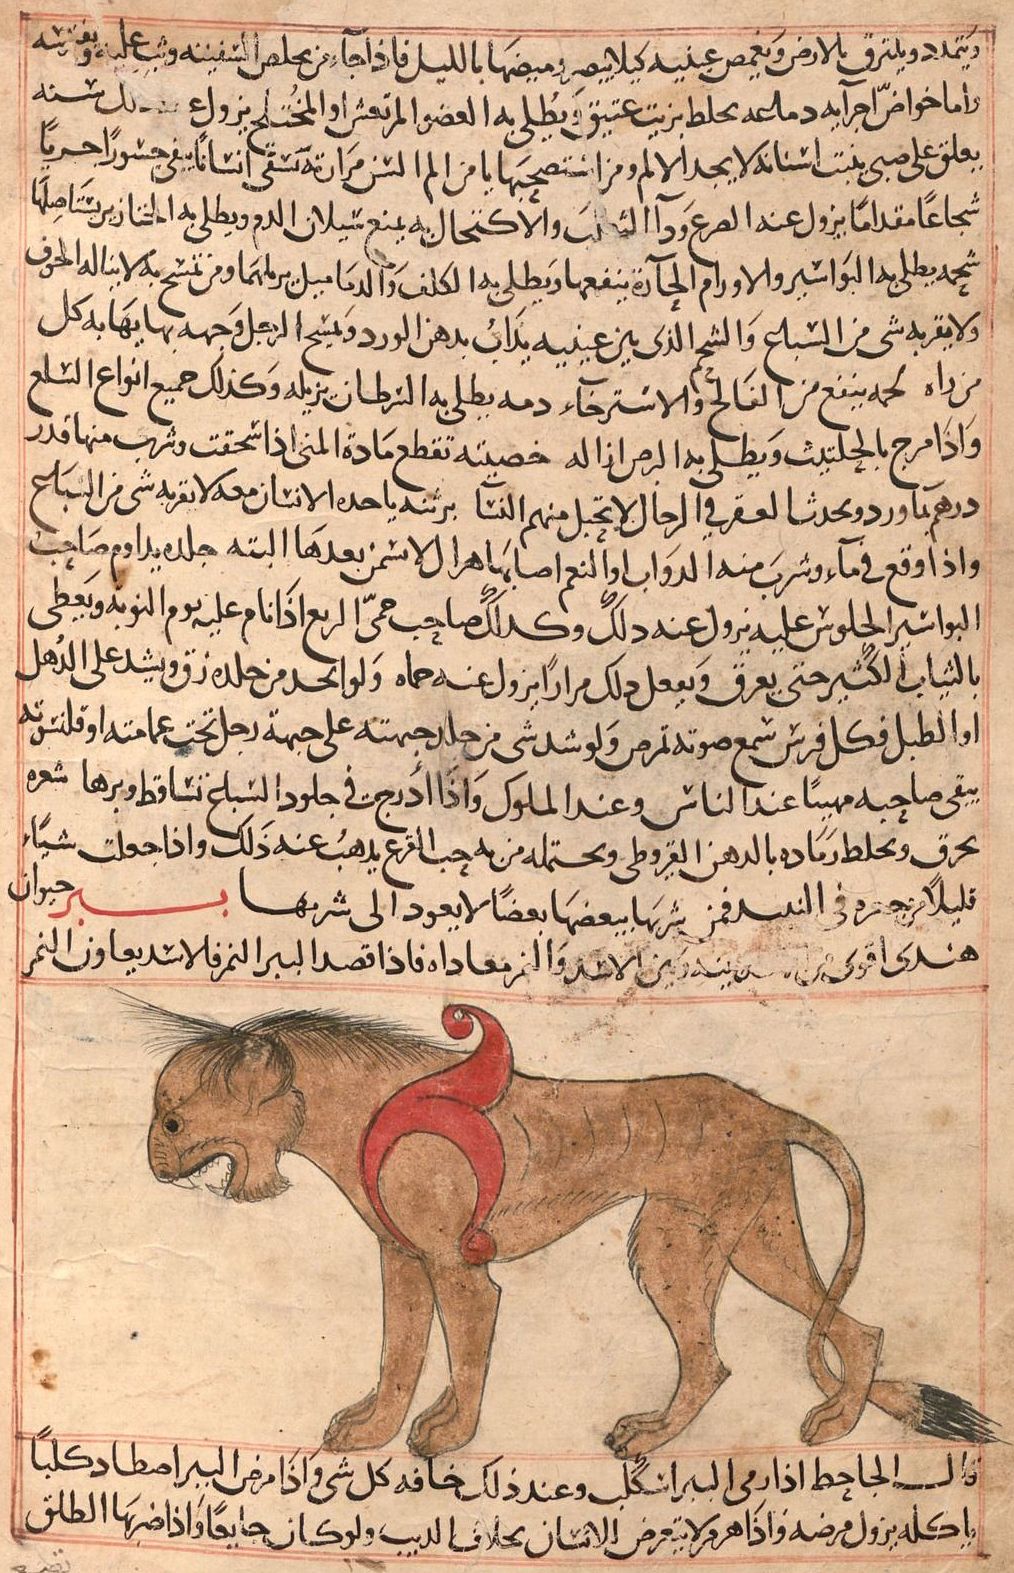 ويتمدد ويلتزق بالارض ويغمض عينيه كيلا يبصر وميضها بالليل فاذا جاء من يحلص السفينه وثب عليه ويفترسه
واما خواض اجزآيه دماغه يخلط بزيت عتيق ويطلى به العضو المرتعش او المختلج يزول سنه
يعلق على صبى ينبت اسنانه لا يجد الالم ومن استصحبها يامن الم السن مرارته تسقى انسانا يبقى جسورا جريا
شجاعا مقداما يزول عنه الصرع ودآ الثعلب والاكتحال به يمنع سيلان الدم ويطلى به الخنازير يستاصلها
شحمه يطلى به البواسير والاورام الحارة ينفعها ويطلى به الكلف والدماميل يزيلهما ومن تمسح به لا يناله الخوف
ولا يقربه شى من السباع والشحم الذى بين عينيه يذاب بدهن الورد ويمسح الرجل وجهه بها يهابه كل
من راه لحمه ينفع من الفالج والاسترخآء دمه يطلى به السرطان يزيله وكذلك جميع انواع السلع
واذا مزج بالحلتيث ويطلى به البرص ازاله خصيته تقطع مادة المنى اذا سحقت وشرب منها قدر
درهم بماورد ويحدث العقر فى الرجال لا تحبل منهم النسا برثنه ياخده الانسان معه لا تقربه شى من السباع
واذا وقع فى مآء وشرب منه الدواب او النعم اصابها هزال لا تسمن بعدها البته جلده يداوم صاحب
البواسير الجلوس عليه يزول عنه دلك وكدلك صاحب حمى الربع اذا نام عليه يوم النوبه ويغطى
بالثياب الكثير حتى يعرق ويفعل دلك مرارا يزول عنه حماه ولو اتخد من جلده زق ويشد على الدهل
او الطبل فكل فرس سمع صوته تمرض ولو شد شى من جلد جبهته على جبهة رجل تحت عمامته او قلنسوته
يبقى صاحبه مهيبا عند الناس وعند الملوك واذا ادرجت فى جلود السباع تتساقط وبرها شعره
يحرق ويخلط رماده بالدهن القيروطى ويحتمله من به حب القرع يدهب عنه ذلك واذا جعلت شيآء
قليلا من فى النبيد فمن شربها يبغضها بغضا لا يعود الى شربها ببر حيوان
هندى اقوى من بينه وبين الاسد والنمر معاداه فاذا قصد الببر النمر فالاسد يعاون النمر
قال الجاحظ اذا رمى الببر استكلب وعند ذلك خافه كل شى واذا مرض الببر اصطاد كلبا
ياكله يزول مرضه واذا هرم لا يتعرض الانسان بخلاف الديب ولو كان جايعا واذا ضربها الطلق